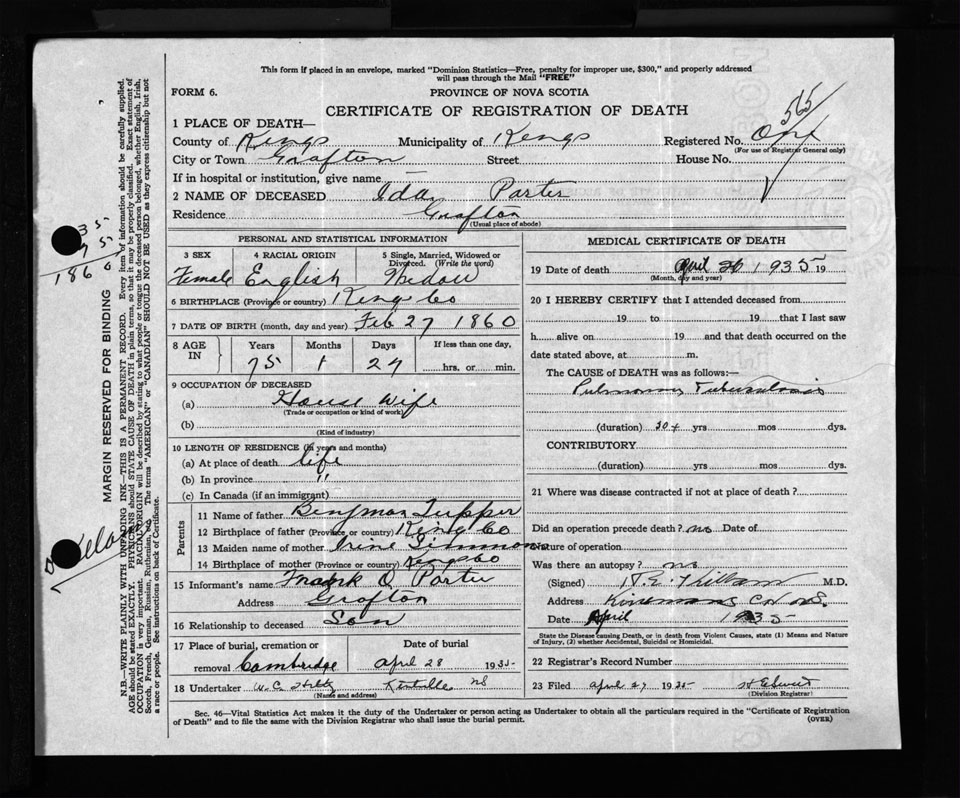 This form if placed in an envelope, marked "Dominion Statistics—Free, penalty for improper use, $300," and properly addressed
will pass through the Mail "FREE"
FORM 6.
PROVINCE OF NOVA SCOTIA
CERTIFICATE OF REGISTRATION OF DEATH
565
1 PLACE OF DEATH—
County of Kings Municipality of Kings Registered No.
(For use of Registrar General only)
City or Town Grafton Street House No.
If in hospital or institution, give name —
2 NAME OF DECEASED Ida Porter
Residence Grafton
(Usual place of abode)
PERSONAL AND STATISTICAL INFORMATION
3 SEX 4 RACIAL ORIGIN 5 Single, Married, Widowed or Divorced. (Write the word)
Female English Widow
6 BIRTHPLACE (Province or country) King Co
7 DATE OF BIRTH (month, day and year) Feb 27 1860
8 AGE IN Years Months Days If less than one day,
75 1 27 hrs. or min.
9 OCCUPATION OF DECEASED
(a) House Wife
(Trade or occupation or kind of work)
(b)
(Kind of industry)
10 LENGTH OF RESIDENCE (in years and months)
(a) At place of death life
(b) In province "
(c) In Canada (if an immigrant)
Parents
11 Name of father Benjman Tupper
12 Birthplace of father (Province or country) King Co
13 Maiden name of mother Irine
14 Birthplace of mother (Province or country) Kings Co
15 Informant's name Frank O Porter
Address Grafton
16 Relationship to deceased Son
17 Place of burial, cremation or removal Cambridge
Date of burial
April 28 1935
18 Undertaker W. C. Kentville NS
(Name and address)
MEDICAL CERTIFICATE OF DEATH
19 Date of death April 26 1935 19
(Month, day and year)
20 I HEREBY CERTIFY that I attended deceased from
19 to 19 that I last saw
h alive on 19 and that death occurred on the
date stated above, at m.
The CAUSE OF DEATH was as follows:—
Pulmonary Tuberculosis
(duration) 30+ yrs mos dys.
CONTRIBUTORY
(duration) yrs mos dys.
21 Where was disease contracted if not at place of death?
Did an operation precede death? no Date of
Nature of operation
Was there an autopsy? no
(Signed) Killam M.D.
Address Kinsmans Cor N.S.
Date April 1935
State the Disease causing Death, or in death from Violent Causes, state (1) Means and Nature
of Injury, (2) whether Accidental, Suicidal or Homicidal.
22 Registrar's Record Number
23 Filed April 27 1935
(Division Registrar)
Sec. 46—Vital Statistics Act makes it the duty of the Undertaker or person acting as Undertaker to obtain all the particulars required in the "Certificate of Registration
of Death" and to file the same with the Division Registrar who shall issue the burial permit.
(OVER)
MARGIN RESERVED FOR BINDING
N.B.—WRITE PLAINLY WITH UNFADING INK—THIS IS A PERMANENT RECORD. Every item of information should be carefully supplied.
AGE should be stated EXACTLY. PHYSICIANS should STATE CAUSE OF DEATH in plain terms, so that it may be properly classified. Exact statement of
OCCUPATION is very important. RACIAL ORIGIN will be described by stating to what people or tongue the deceased person belonged, whether English, Irish,
Scotch, French, German, Russian, Ruthenian, etc. The terms "AMERICAN" or "CANADIAN" SHOULD NOT BE USED as they express citizenship but not
a race or people. See instructions on back of Certificate.
35
75
1860